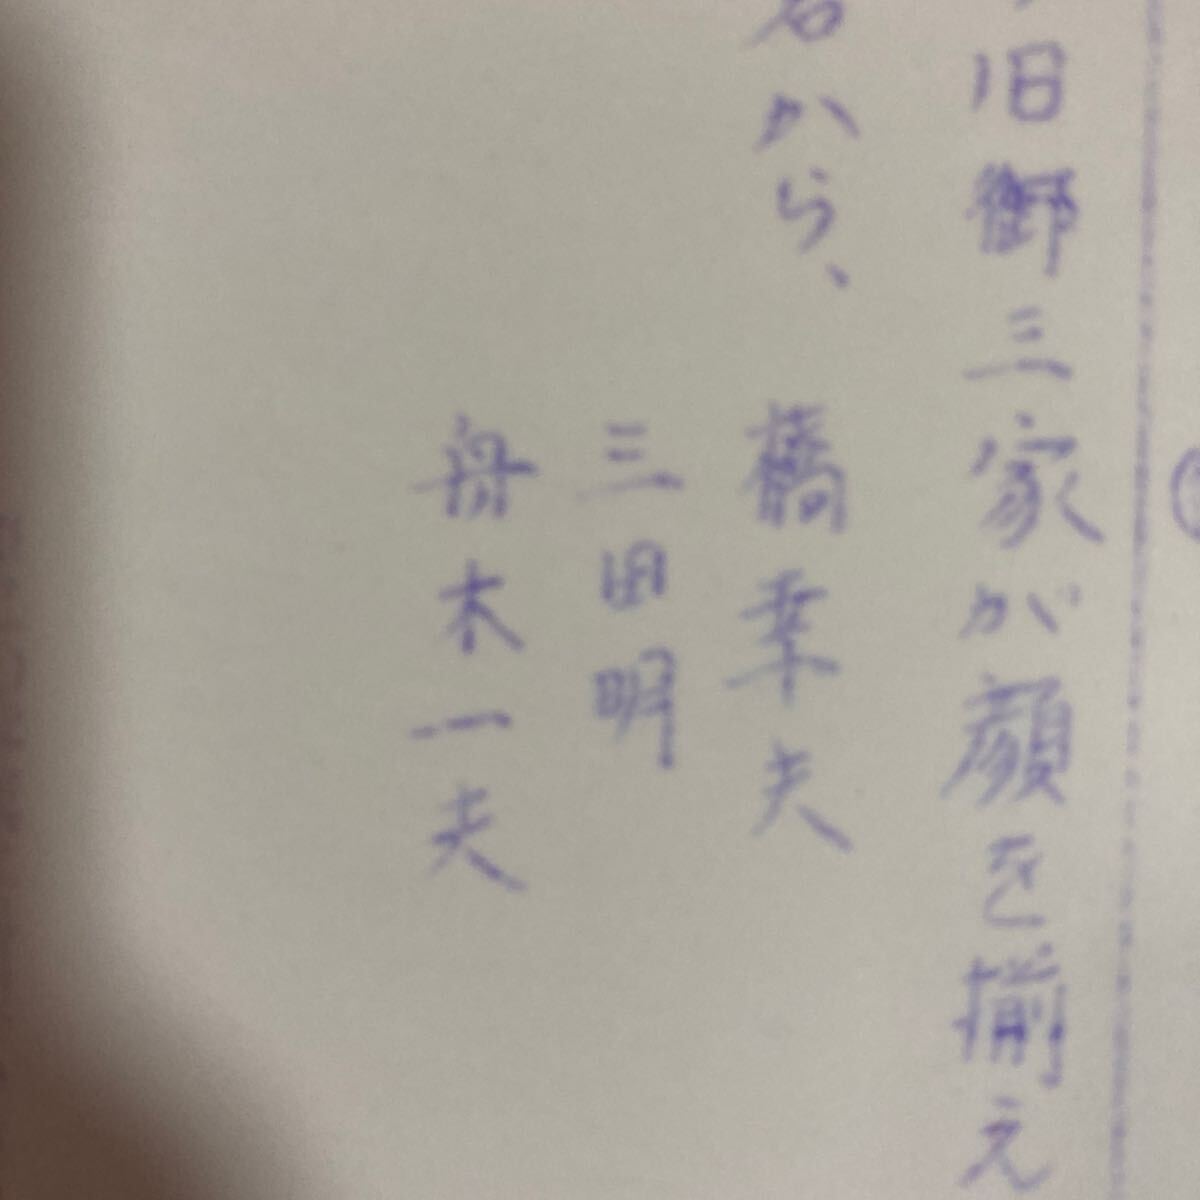 旧御三家が顔を揃え
右から、
橋幸夫
三田明
舟木一夫